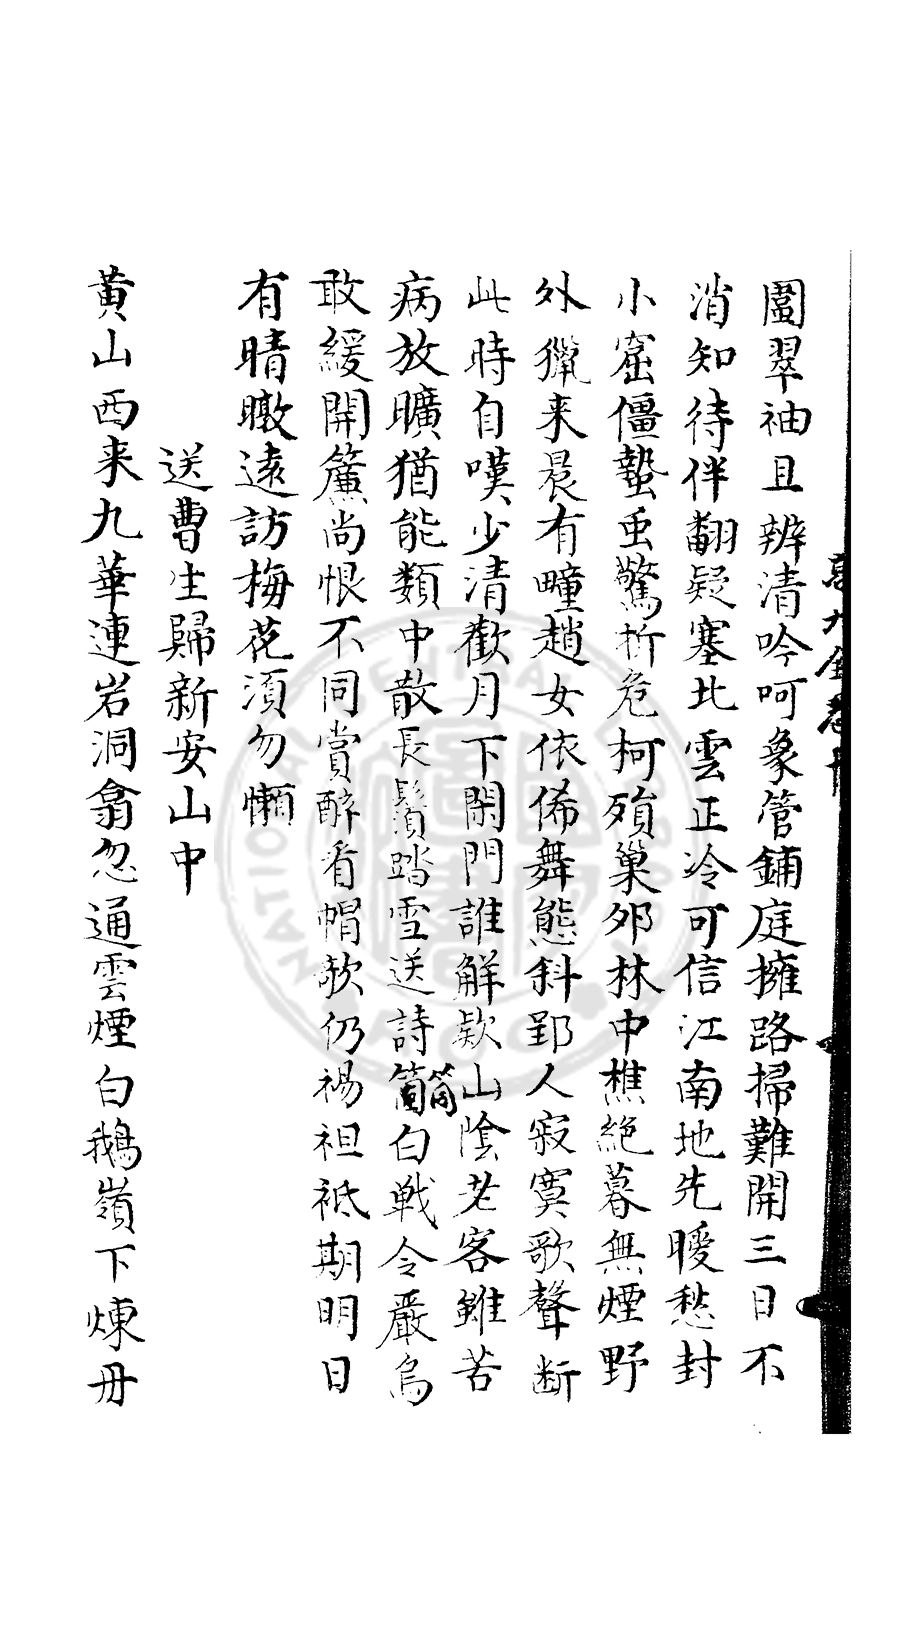 圍翠袖且辨清吟呵象管鋪庭擁路掃難開三日不
消知待伴翻疑塞北雲正冷可信江南地先暖愁封
小窟僵蟄虫驚折危柯殞巢夘林中樵絕暮無煙野
外獵来晨有疃趙女依俙舞態斜郢人寂寞歌聲断
此時自嘆少清歡月下閑門誰解欵山陰老客雖苦
病放曠猶能類中散長鬚踏雪送詩筒白戦令嚴烏
敢緩開簾尚恨不同賞醉看帽欹仍裼袒袛期明日
有晴暾遠訪梅花須勿懶
送曹生歸新安山中
黄山西来九華連岩洞翕忽通雲煙白鵝嶺下煉丹